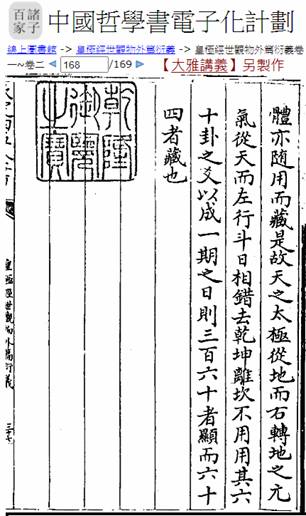 諸子
百家
中國哲學書電子化計劃
線上圖書館 -> 皇極經世觀物外篇衍義 -> 皇極經世觀物外篇衍義卷
一~卷二 168 /169 【大雅講義】另製作
體亦随用而藏是故天之太極從地而右轉地之元
氣從天而左行斗日相錯去乾坤離坎不用用其六
十卦之爻以成一期之日則三百六十者顯而六十
四者藏也
乾隆
御覽
之寶
皇極經世觀物外篇衍義